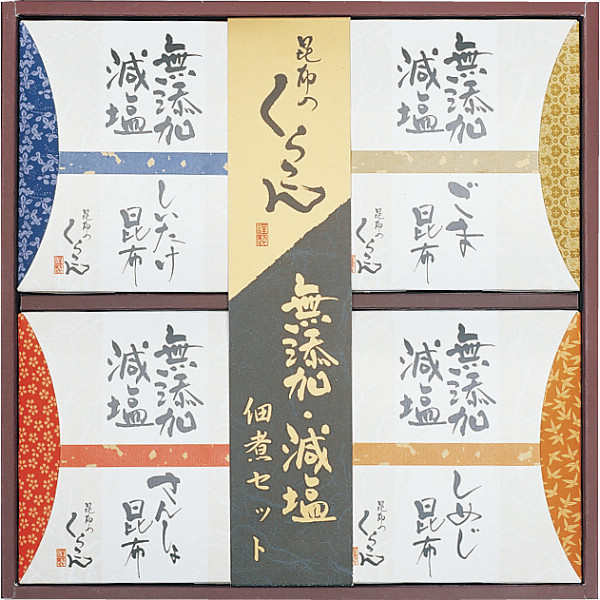 昆布の
くらこん
無添加・減塩
佃煮セット
無添加
減塩
しいたけ
昆布
昆布の
くらこん
無添加
減塩
ごま
昆布
昆布の
くらこん
無添加
減塩
さんしょ
昆布
昆布の
くらこん
無添加
減塩
しめじ
昆布
昆布の
くらこん